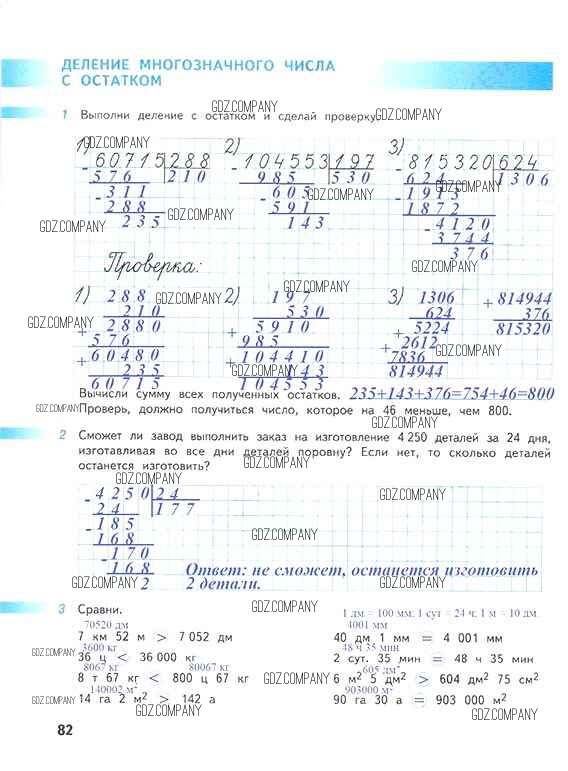 ДЕЛЕНИЕ МНОГОЗНАЧНОГО ЧИСЛА
С ОСТАТКОМ
GDZ.COMPANY
1 Выполни деление с остатком и сделай проверку.
GDZ.COMPANY
1) 2) 3)
- 60715 288 - 104553 197 - 815320 624
576 210 985 530 624 1306
GDZ.COMPANY
- 311 - 605 - 1913
288 591 1872
GDZ.COMPANY
235 143 - 4120
GDZ.COMPANY
3744
376
GDZ.COMPANY
Проверка:
GDZ.COMPANY
1) 288 2) 197 3) 1306 + 814944
GDZ.COMPANY
210 530 624 376
+ 2880 + 5910 + 5224 815320
GDZ.COMPANY
576 985 2612
GDZ.COMPANY
+ 60480 + 104410 7836
235 143 814944
GDZ.COMPANY
60715 104553
Вычисли сумму всех полученных остатков. 235+143+376=754+46=800
GDZ.COMPANY
Проверь, должно получиться число, которое на 46 меньше, чем 800.
GDZ.COMPANY
2 Сможет ли завод выполнить заказ на изготовление 4 250 деталей за 24 дня,
изготавливая во все дни деталей поровну? Если нет, то сколько деталей
останется изготовить?
GDZ.COMPANY
- 4250 24
GDZ.COMPANY
GDZ.COMPANY
24 177
- 185
168
GDZ.COMPANY
- 170
168 Ответ: не сможет, останется изготовить
2 2 детали.
GDZ.COMPANY
GDZ.COMPANY
GDZ.COMPANY
3 Сравни.
1 дм = 100 мм; 1 сут = 24 ч; 1 м = 10 дм
70520 дм 4001 мм
7 км 52 м > 7 052 дм 40 дм 1 мм = 4 001 мм
3600 кг 48 ч 35 мин
GDZ.COMPANY
36 ц < 36 000 кг 2 сут. 35 мин = 48 ч 35 мин
GDZ.COMPANY
8067 кг 80067 кг 605 дм²
8 т 67 кг < 800 ц 67 кг 6 м² 5 дм² > 604 дм² 75 см²
140002 м² 903000 м²
GDZ.COMPANY
14 га 2 м² > 142 а 90 га 30 а = 903 000 м²
GDZ.COMPANY
GDZ.COMPANY
82